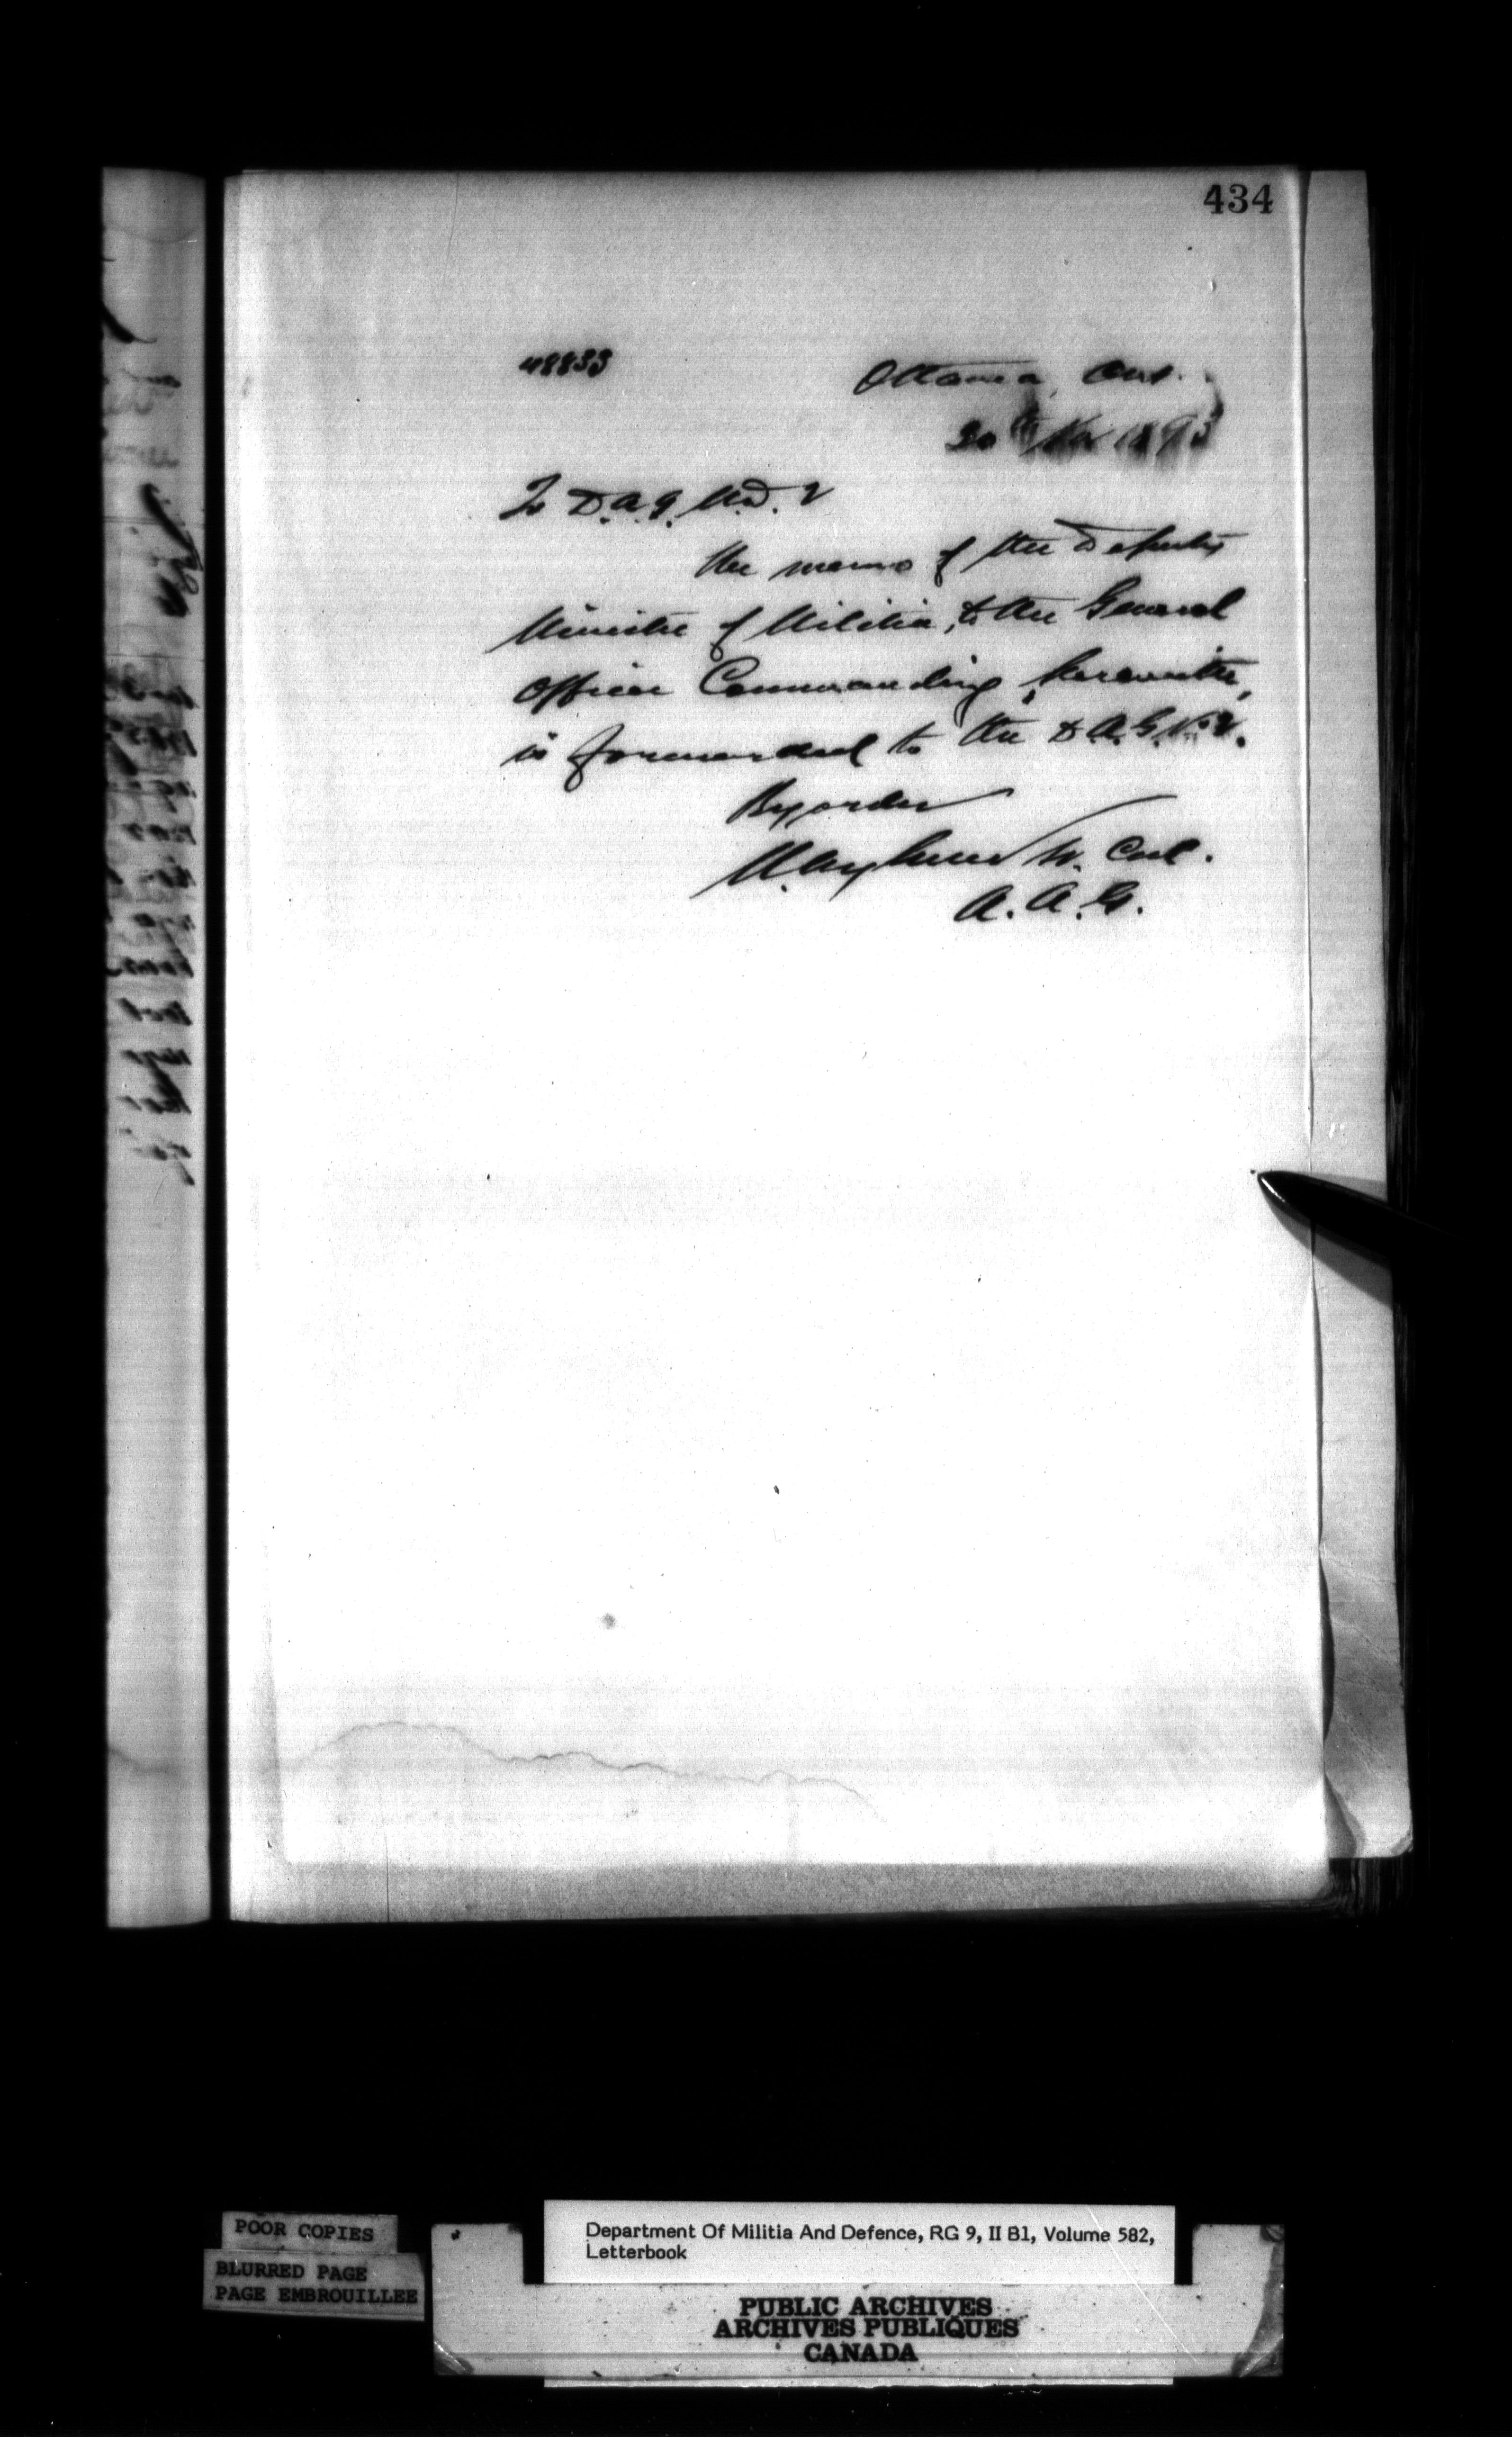 434
48833
Ottawa, Ont.
30th Nov 1893
To D.A.G. M.D. 2
The memo of the Deputy
Minister of Militia, to the General
Officer Commanding, herewith,
is forwarded to the D.A.G. No. 2.
By order
Col.
A.A.G.
POOR COPIES
BLURRED PAGE
PAGE EMBROUILLEE
Department Of Militia And Defence, RG 9, II B1, Volume 582,
Letterbook
PUBLIC ARCHIVES
ARCHIVES PUBLIQUES
CANADA